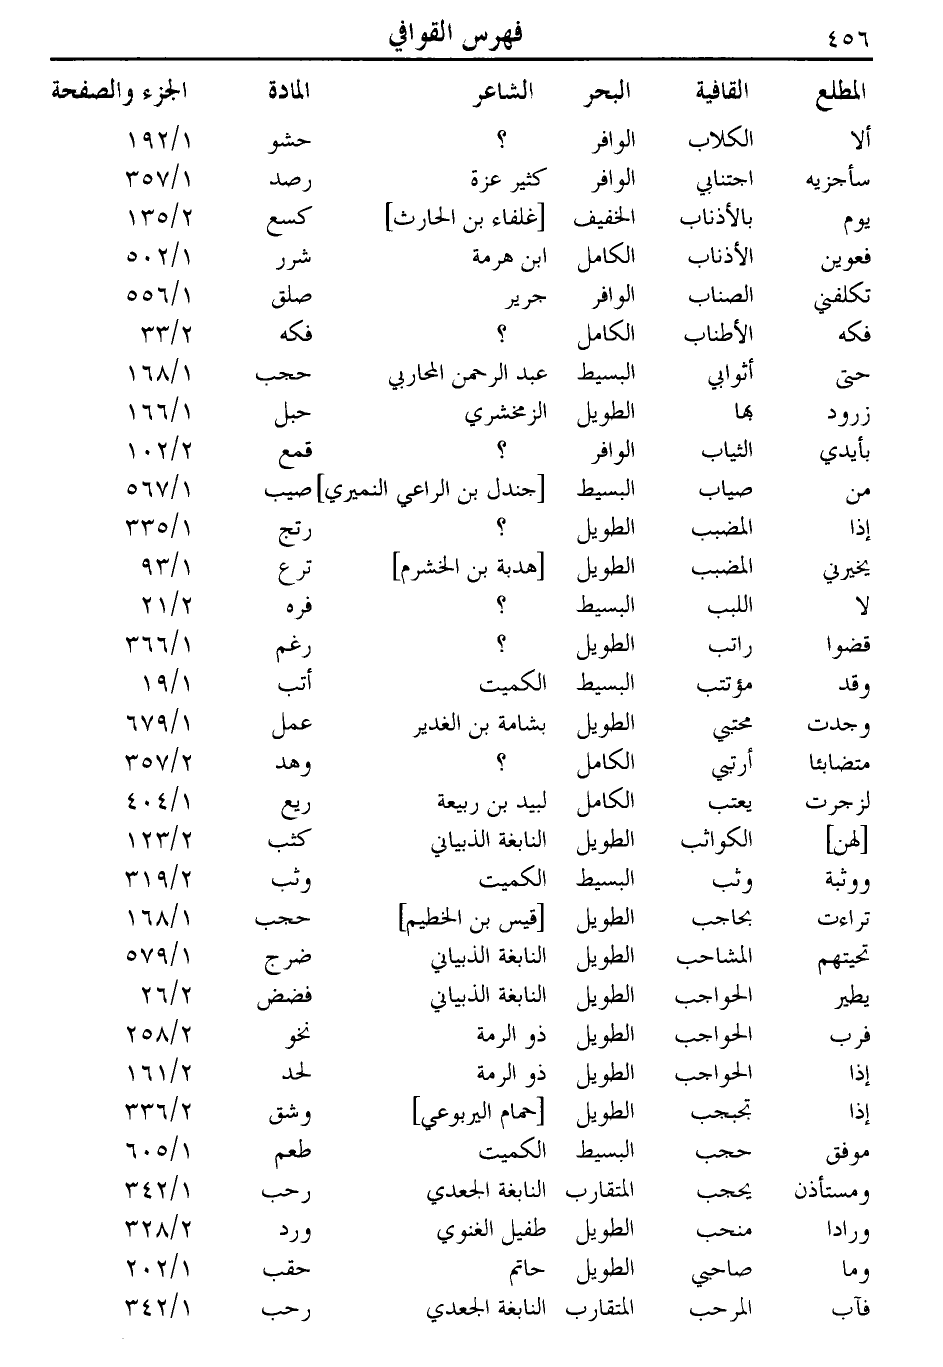 ٤٥٦ فهرس القوافي
المطلع القافية البحر الشاعر المادة الجزء والصفحة
ألا الكلاب الوافر ؟ حشو ١٩٢/١
سأجزيه اجتنابي الوافر كثير عزة رصد ٣٥٧/١
يوم بالأذناب الخفيف [غلفاء بن الحارث] كسع ١٣٥/٢
فعوين الأذناب الكامل ابن هرمة شرر ٥٠٢/١
تكلفني الصناب الوافر جرير صلق ٥٥٦/١
فكه الأطناب الكامل ؟ فكه ٣٣/٢
حتى أثوابي البسيط عبد الرحمن المحاربي حجب ١٦٨/١
زرود بها الطويل الزمخشري حبل ١٦٦/١
بأيدي الثياب الوافر ؟ قمع ١٠٢/٢
من صياب البسيط [جندل بن الراعي النميري] صيب ٥٦٧/١
إذا المضبب الطويل ؟ رتج ٣٣٥/١
يخيرني المضبب الطويل [هدبة بن الخشرم] ترع ٩٣/١
لا اللبب البسيط ؟ فره ٢١/٢
قضوا راتب الطويل ؟ رغم ٣٦٦/١
وقد مؤتتب البسيط الكميت أتب ١٩/١
وجدت محتبي الطويل بشامة بن الغدير عمل ٦٧٩/١
متضابئا أرتبي الكامل ؟ وهد ٣٥٧/٢
لزجرت يعتب الكامل لبيد بن ربيعة ريع ٤٠٤/١
[لهن] الكواثب الطويل النابغة الذبياني كثب ١٢٣/٢
ووثبة وثب البسيط الكميت وثب ٣١٩/٢
تراءت بحاجب الطويل [قيس بن الخطيم] حجب ١٦٨/١
تحيتهم المشاحب الطويل النابغة الذبياني ضرج ٥٧٩/١
يطير الحواجب الطويل النابغة الذبياني فضض ٢٦/٢
فرب الحواجب الطويل ذو الرمة نخو ٢٥٨/٢
إذا الحواجب الطويل ذو الرمة لحد ١٦١/٢
إذا تحبجب الطويل [حمام اليربوعي] وشق ٣٣٦/٢
موفق حجب البسيط الكميت طعم ٦٠٥/١
ومستأذن يحجب المتقارب النابغة الجعدي رحب ٣٤٢/١
ورادا منحب الطويل طفيل الغنوي ورد ٣٢٨/٢
وما صاحبي الطويل حاتم حقب ٢٠٢/١
فآب المرحب المتقارب النابغة الجعدي رحب ٣٤٢/١